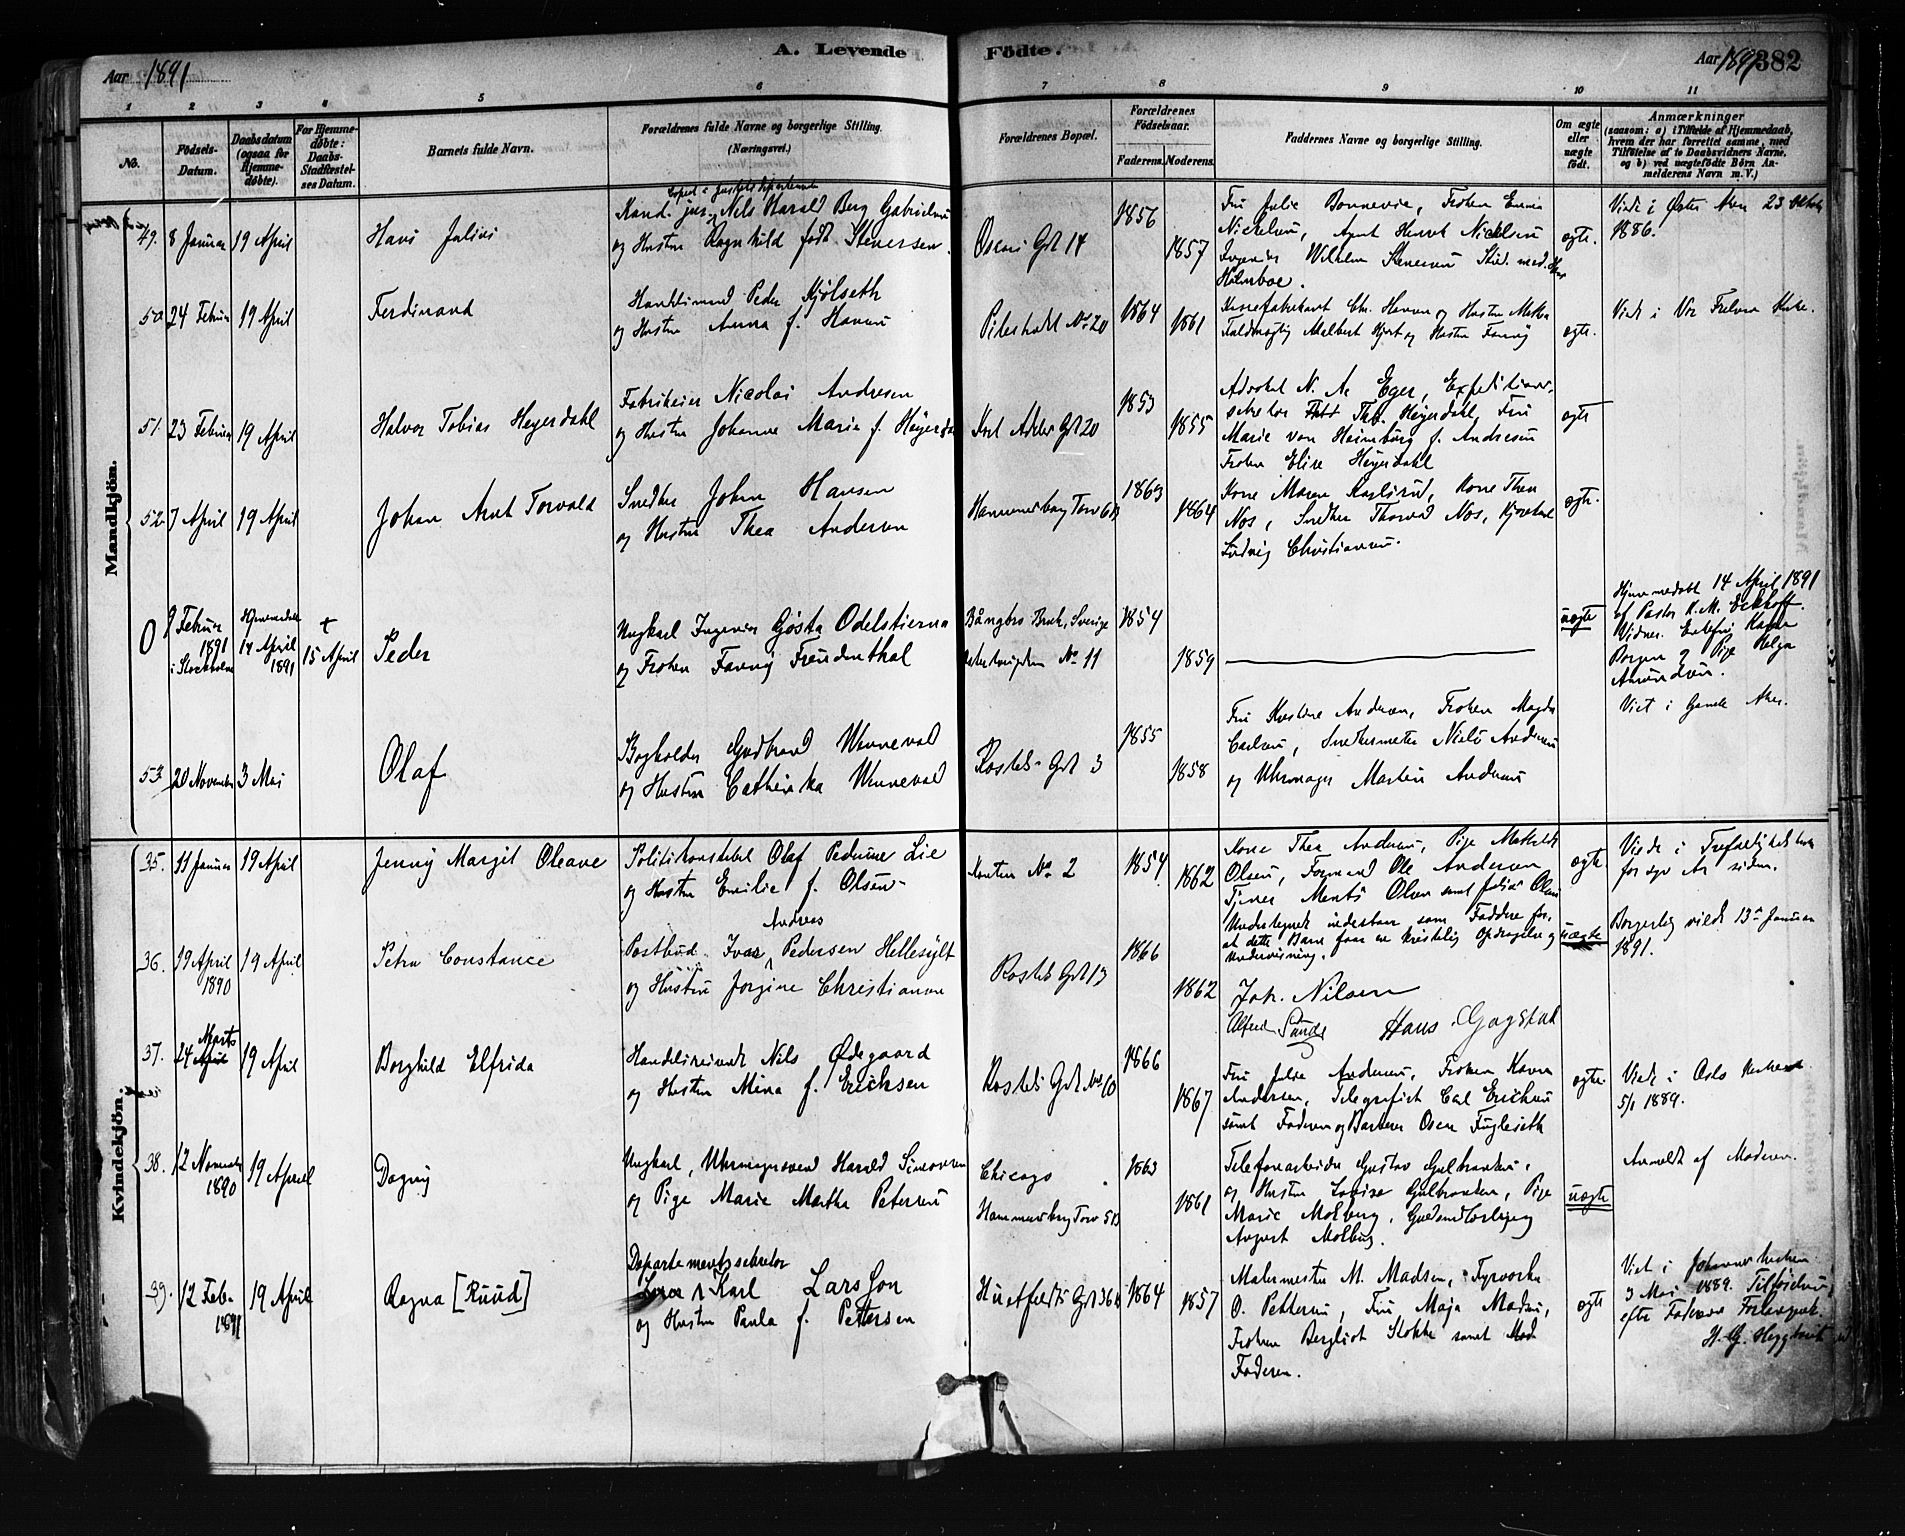 A. Levende Födte.
Aar 1891
Aar 1891 382
1 2 3 4 5 6 7 8 9 10 11
No.
Födsels-Datum.
Daabsdatum (ogsaa for Hjemmedöbte).
For Hjemmedöbte: Daabs-Stadfæstelses Datum.
Barnets fulde Navn.
Forældrenes fulde Navne og borgerlige Stilling. (Næringsvei.)
Forældrenes Bopæl.
Forældrenes Födselsaar.
Faderens. Moderens.
Faddernes Navne og borgerlige Stilling.
Om ægte eller uægte födt.
Anmærkninger (saasom: a) i Tilfælde af Hjemmedaab, hvem der har forrettet samme, med Tilföielse af to Daabsvidners Navne, og b) ved uægtefödte Börn Anmelderens Navn m. V.)
Mandkjön.
49. 8 Januar 19 April
Hans Julius
Kand. jur. Nils Harald Berg Gabrielsen
og Hustru Ragnhild født Stenersen
Oscars Gd 14
1856
1857
Fru Julie Bonnevie, Frøken Emma
Nickelsen, Agent Henrik Nickelsen
Ingeniør Wilhelm Stenersen Stud. med. Hans
Holmboe.
ægte.
Viede i Østre Aker 23 Oktober
1886.
50 24 Februar 19 April
Ferdinand
Handelsmand Peder Kjølseth
og Hustru Anna f. Hansen
Pilestrædet No 20
1864
1861
og Hustru Fanny
ægte.
Viede i Vor Frelsers Kirke.
51. 23 Februar 19 April
Halvor Tobias Heyerdahl
Fabrikeier Nicolai Andresen
og Hustru Johanne Marie f. Heyerdahl
Kort Adelers Gd 20
1853
1855
Advokat N. A. Eger, Expeditions-
sekretær Thb. Heyerdahl, Fru
Marie von Heimburg f. Andresen
Frøken Elise Heyerdahl
ægte
52 7 April 19 April
Johan Arnt Torvald
Snedker Johan Hansen
og Hustru Thea Andersen
Hammersborg Torv 6B
1863
1864
Kone Maren Karlsrud, Kone Thea
Nos, Snedker Thorvald Nos,
Ludvig Christiansen.
ægte.
0 9 Februar 1891 i Stockholm
Hjemmedøbt 14 April 1891
† 15 April
Peder
Ungkarl Ingeniør Gøsta Odelstierna
og Frøken Fanny Freudenthal
Bångbro Bruk, Sverige
No 11
1854
1859
uægte
Hjemmedøbt 14 April 1891
af Pastor K. M. Eckhoff.
Vidner: Enkefru Karen
Borgen og Pige Helga
Amundsen.
53 20 November 3 Mai
Olaf
Bogholder Gudbrand Wenneval
og Hustru Cathinka Wenneval
Rosteds Gd 3
1855
1858
Fru Kristine Andersen, Frøken Magda
Carlsen, Snedkermester Niels Andersen
og Uhrmager Martin Andersen
Viet i Gamle Aker.
Kvindekjön.
35. 11 Januar 19 April
Jenny Margit Oleave
Politikonstabel Olaf Pedersen Lie
og Hustru Emilie f. Olsen
No 2
1854
1862
Kone Thea Andersen, Pige Mathilde
Olsen, Formand Ole Andersen
Tjener Olsen samt Julius Olsen
ægte
Viede i Trefoldigheds Kirke
for syv Aar siden.
36. 19 April 1890 19 April
Petra Constance
Postbud Ivar Andreas Pedersen Hellesylt
og Hustru Jorgine Christiansen
Rosteds Gd 13
1866
1862
Undertegnede indestaar som Faddere for,
at dette Barn faar en kristelig Opdragelse og
Undervisning.
Joh. Nilsen
Alfred Sunde Hans Gogstad
uægte
Borgerlig viede 13de Januar
1891.
37. 24 Marts 19 April
Borghild Elfrida
Handelsreisende Nils Ødegaard
og Hustru Mina f. Ericksen
Rosteds Gd No 10
1866
1867
Fru Julie Andersen, Frøken Karen
Andersen, Telegrafist Carl Ericksen
samt Faderen og Barberer Oscar Fugleseth
ægte.
Viede i Oslo Kirke
5/1 1889.
38. 12 November 1890 19 April
Dagny
Ungkarl, Uhrmagersvend Harald Simonsen
og Pige Marie Martha Petersen
Chicago
Hammersborg Torv 5B
1863
1861
Telefonarbeider Gustav Gulbrandsen,
og Hustru Lovise Gulbrandsen, Pige
Marie Molberg,
August Molberg.
uægte
Anmeldt af Moderen.
39. 12 Feb. 1891 19 April
Ragna [Ruud]
Departementssekretær
Karl Larsson
og Hustru Paula f. Pettersen
Huitfeldts Gd 36
1864
1857
Malermester M. Madsen,
O. Pettersen, Fru Maja Madsen,
Frøken Bergliot Stokke samt
Faderen.
ægte
Viet i Johannes kirken
3 Mai 1889. Tilføielsen
efter Faderens Forlangende.